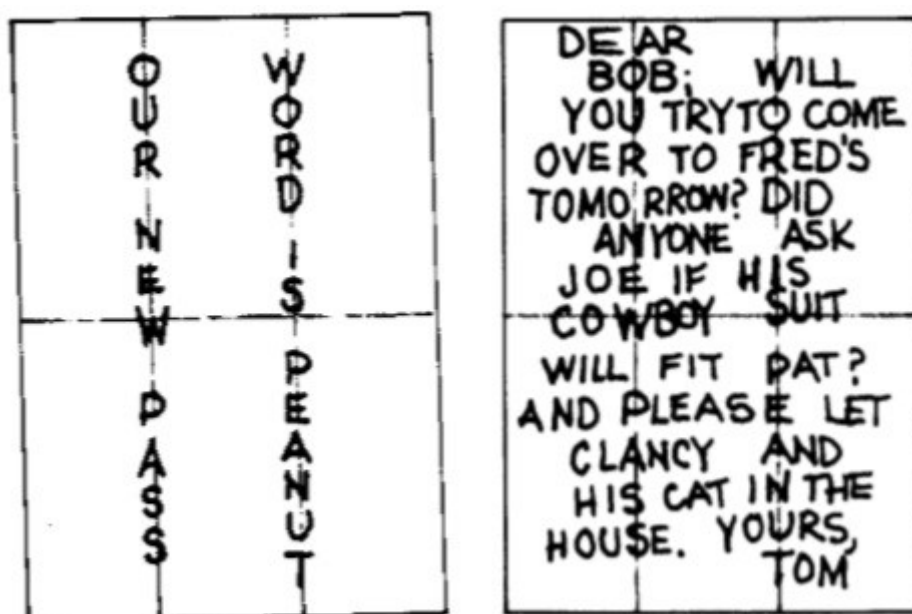 OUR NEW PASS
WORD IS PEANUT
DEAR
BOB; WILL
YOU TRY TO COME
OVER TO FRED'S
TOMORROW? DID
ANYONE ASK
JOE IF HIS
COWBOY SUIT
WILL FIT PAT?
AND PLEASE LET
CLANCY AND
HIS CAT IN THE
HOUSE. YOURS,
TOM